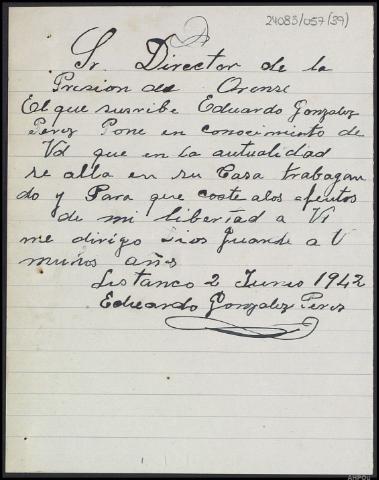 24083/057(39)
Sr. Director de la
Presion de Orense
El que susribe Eduardo Gonzalez
Perez Pone en conocimiento de
Vd que en la autualidad
se alla en su Casa trabagan
do y Para que coste alos efeutos
de mi libertad a V
me dirigo Dios guarde a V
muños años
Listanco 2 Junio 1942
Eduardo Gonzalez Perez
AHPOU